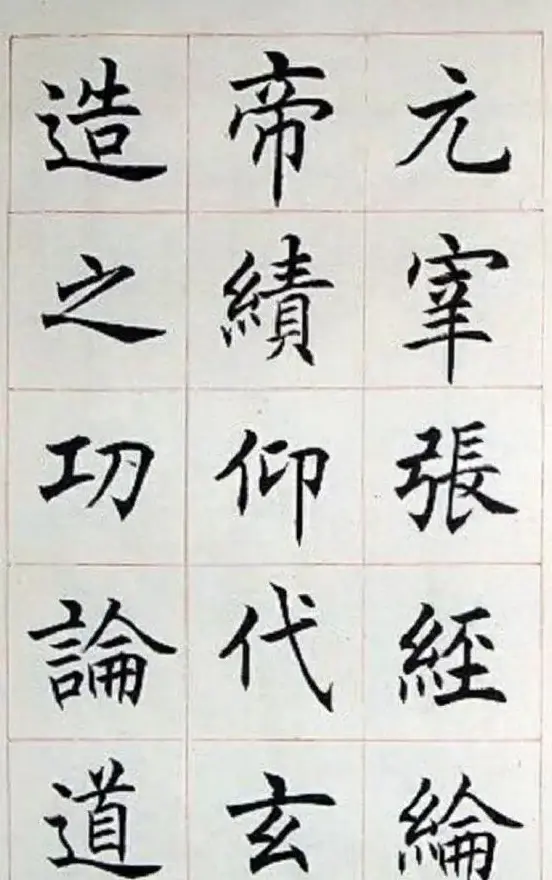 元宰張經綸
帝績仰代玄
造之功論道